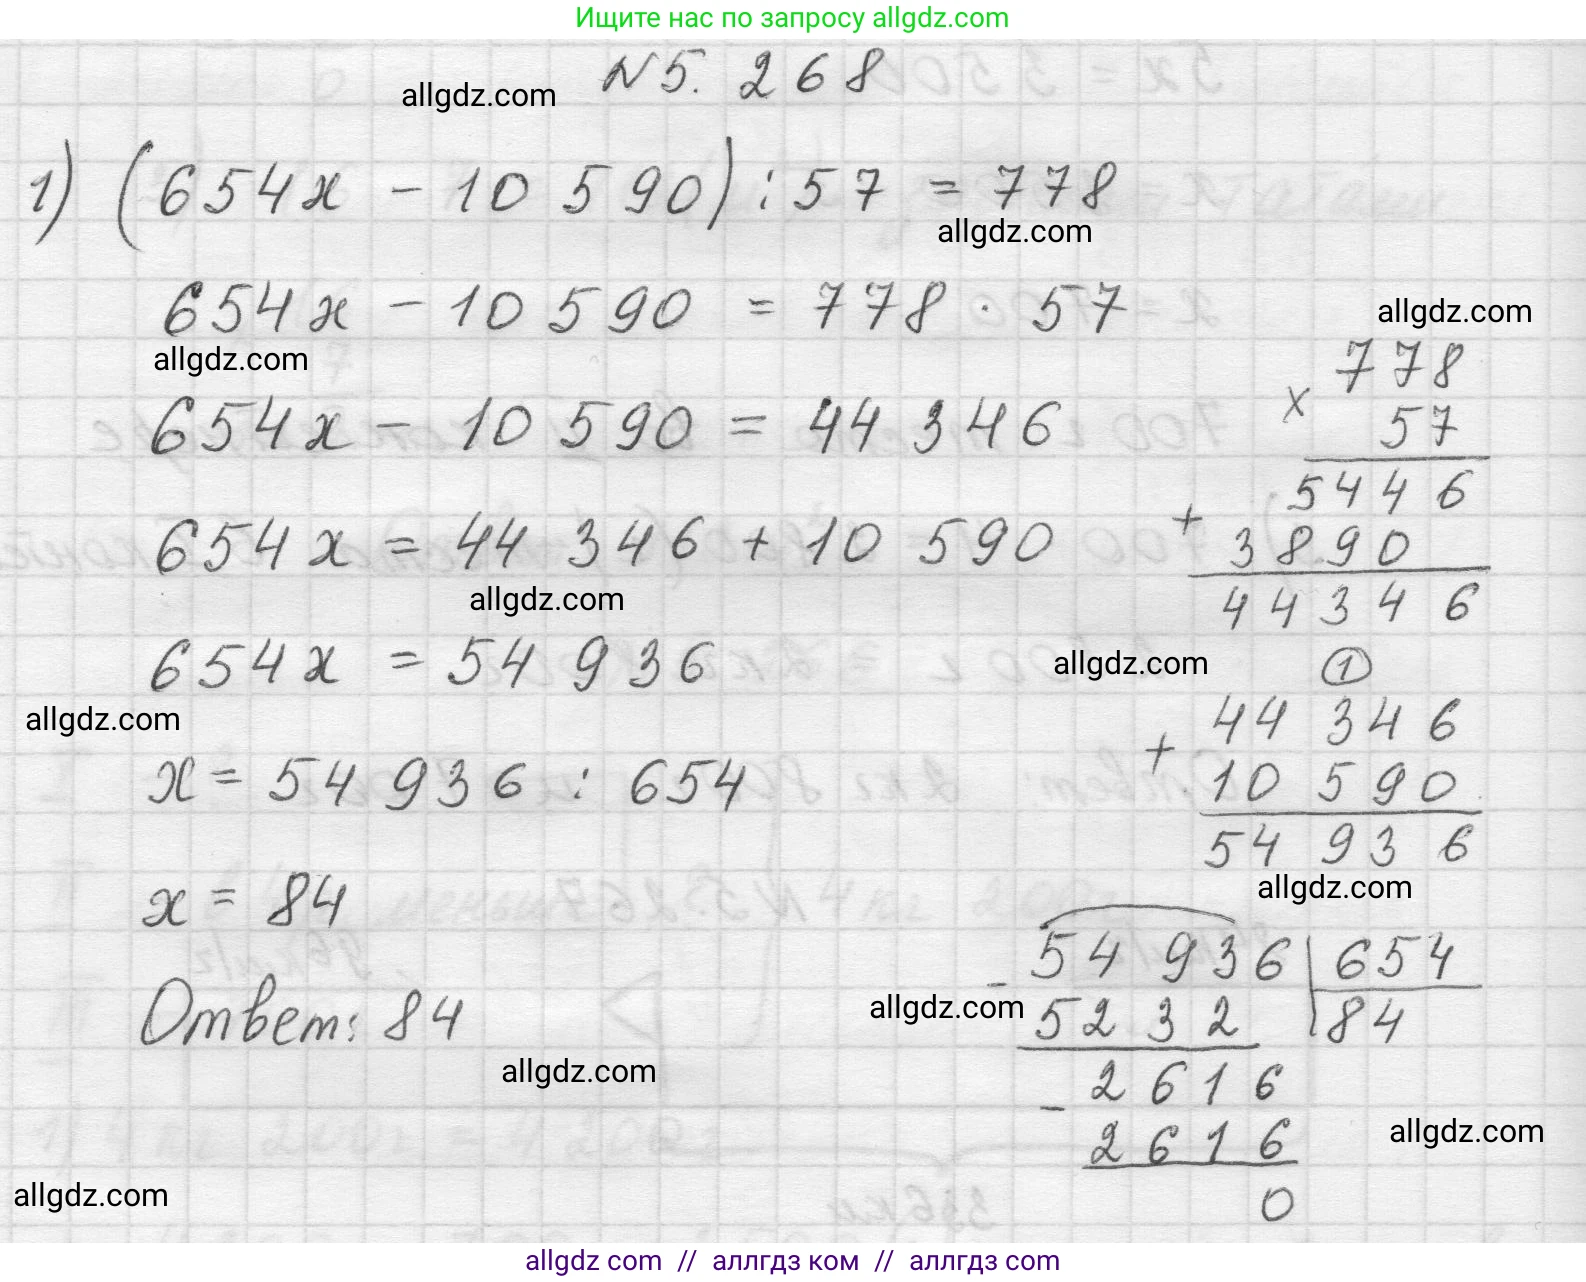 Ищите нас по запросу allgdz.com
N 5. 268
allgdz.com
1) (654x - 10 590) : 57 = 778
allgdz.com
654x - 10 590 = 778 · 57
allgdz.com
allgdz.com
654x - 10 590 = 44 346
654x = 44 346 + 10 590
allgdz.com
654x = 54 936
allgdz.com
x = 54 936 : 654
x = 84
Ответ: 84
allgdz.com
allgdz.com
778
× 57
5446
+ 3890
44346
allgdz.com
1
44 346
+ 10 590
54 936
allgdz.com
- 54 936 | 654
5232 | 84
allgdz.com
- 2616
2616
0
allgdz.com
allgdz.com com // аллгдз ком // аллгдз com